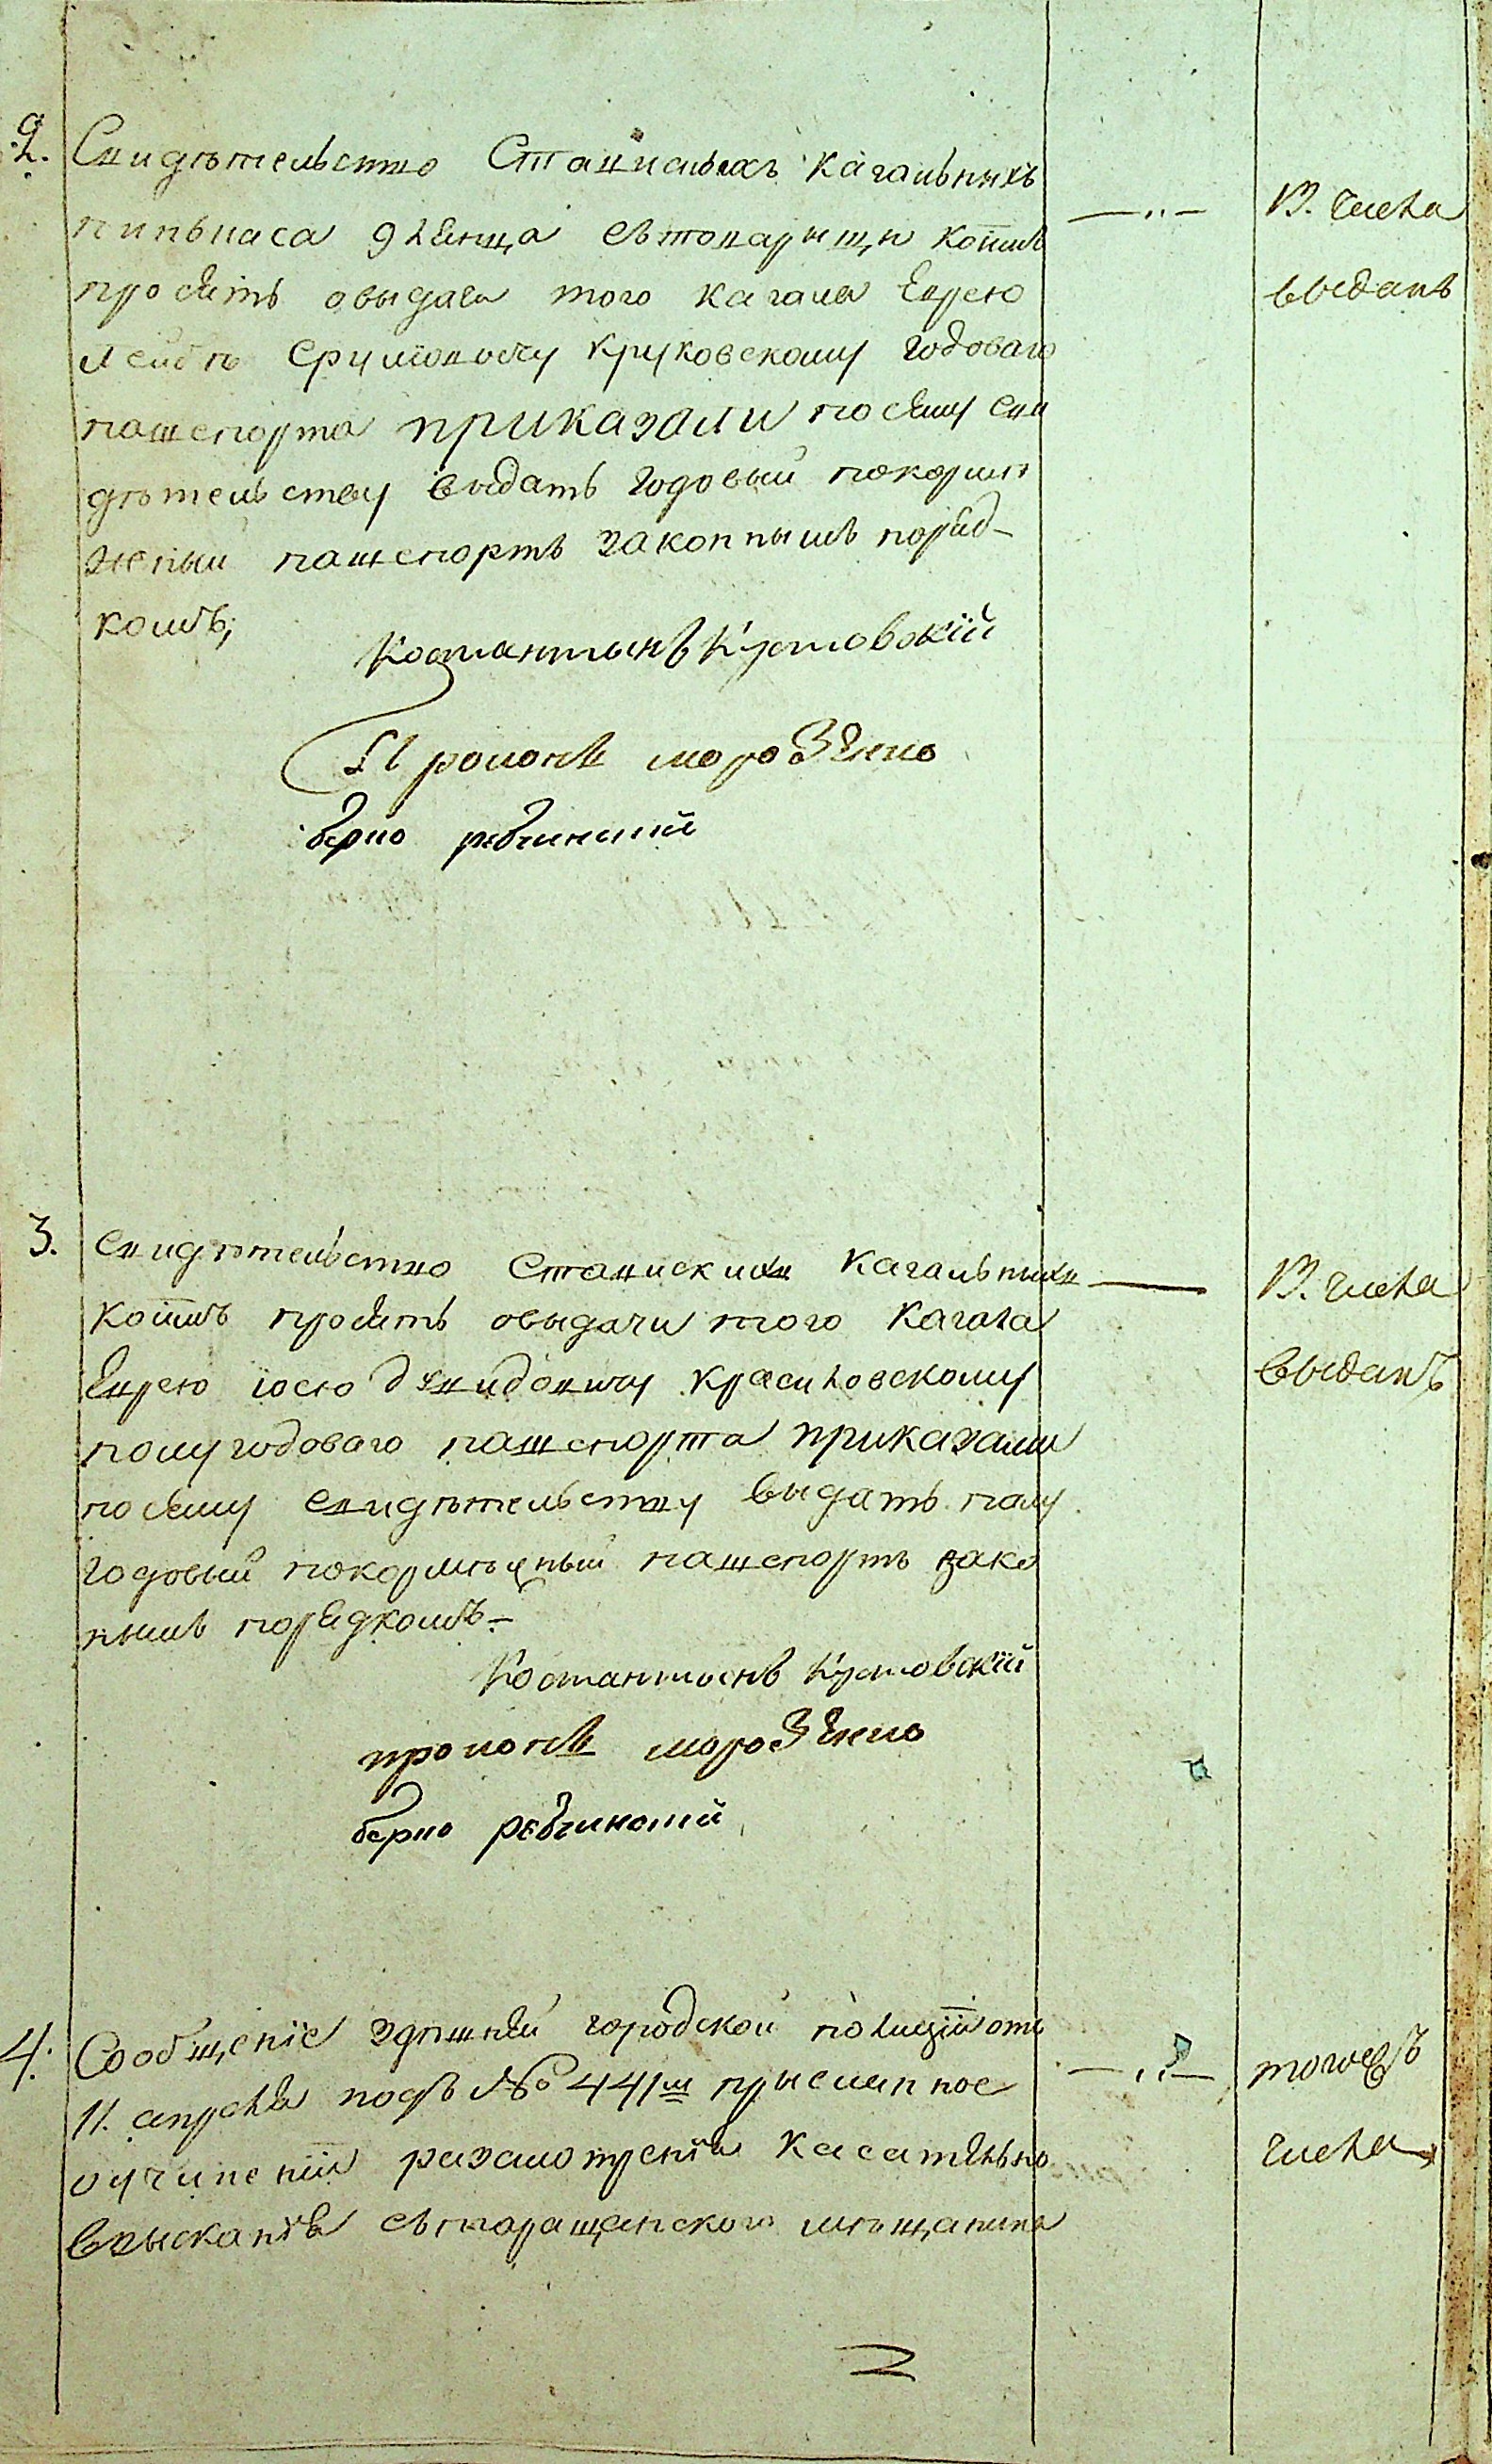 2. Свидѣтельство Ставискихъ кагальныхъ
пинъкаса стоварищи коимъ
просятъ овыдачи того кагала Еврею
Лейбѣ Срулiовичу Круковскому годоваго
пашепорта приказали посему сви
дѣтельству выдать годовый покорми
жный пашепортъ законнымъ поряд-
комъ;
Костантынъ Кустовскiй
Прокопъ морозенко
берко ребчинский
13. числа
выданъ
3. Свидѣтельство Ставискихъ кагальныхъ
коимъ просятъ овыдачи того кагала
Еврею iосю давидовичу красиловскому
полугодоваго пашепорта приказали
посему свидѣтельству выдать полу
годовый покормежный пашепортъ зако
нымъ порядкомъ.-
Костантынъ Кустовскiй
прокопъ морозенко
берко ребчинский
13. числа
выданъ
4. Сообщенiе здѣшней городской полицiи отъ
11. апреля подъ № 441м присланное
оучиненiи разсмотренiя касательно
взысканiя старащанского мѣщанина
тогожъ
числа